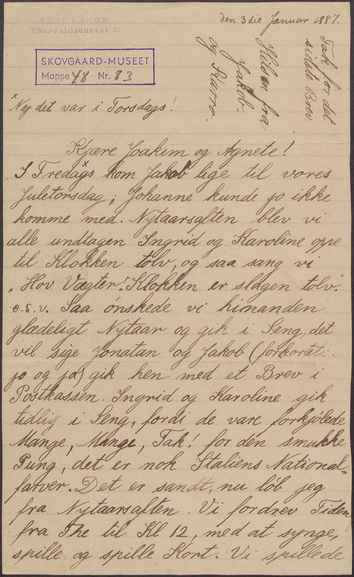 den 3die Januar 1887.
Tak for det
sidste Brev
Hilsen fra
Jakob.
og Karo.
SKOVGAARD-MUSEET
Mappe 48 Nr. 83
*Nej det var i Torsdags!
Kjære Joakim og Agnete!
I Fredags* kom Jakob lige til vores
Juletorsdag, Johanne kunde jo ikke
komme med. Nytaarsaften blev vi
alle undtagen Ingrid og Karoline oppe
til Klokken tolv, og saa sang vi
„Hov Vægter! Klokken er slagen tolv."
o.s.v. Saa ønskede vi hinanden
glædeligt Nytaar og gik i Seng, det
vil sige Jonatan og Jakob (forkortet:
jo og ja) gik hen med et Brev i
Postkassen. Ingrid og Karoline gik
tidlig i Seng, fordi de vare forkjølede.
Mange, Mange, Tak! for den smukke
Pung, det er nok Italiens National-
farver. Det er sandt, nu løb jeg
fra Nytaarsaften. Vi fordrev Tiden
fra The til Kl 12, med at synge,
spille og spille Kort. Vi spillede